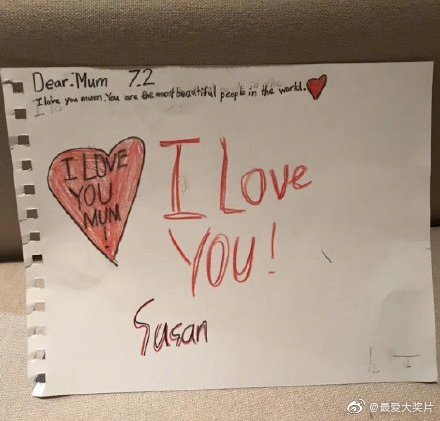 Dear.Mum 7.2
I love you mum. You are the most beautiful people in the world.
I LOVE
YOU
MUM
I Love
YOU!
Susan
@最爱大奖片